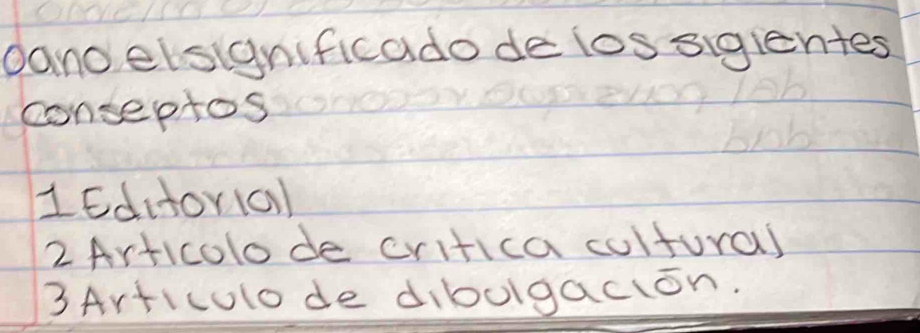 oano el significado de los sigientes
conseptos
1 Editorial
2 Articolo de critica coltural
3 Articulo de dibulgación.